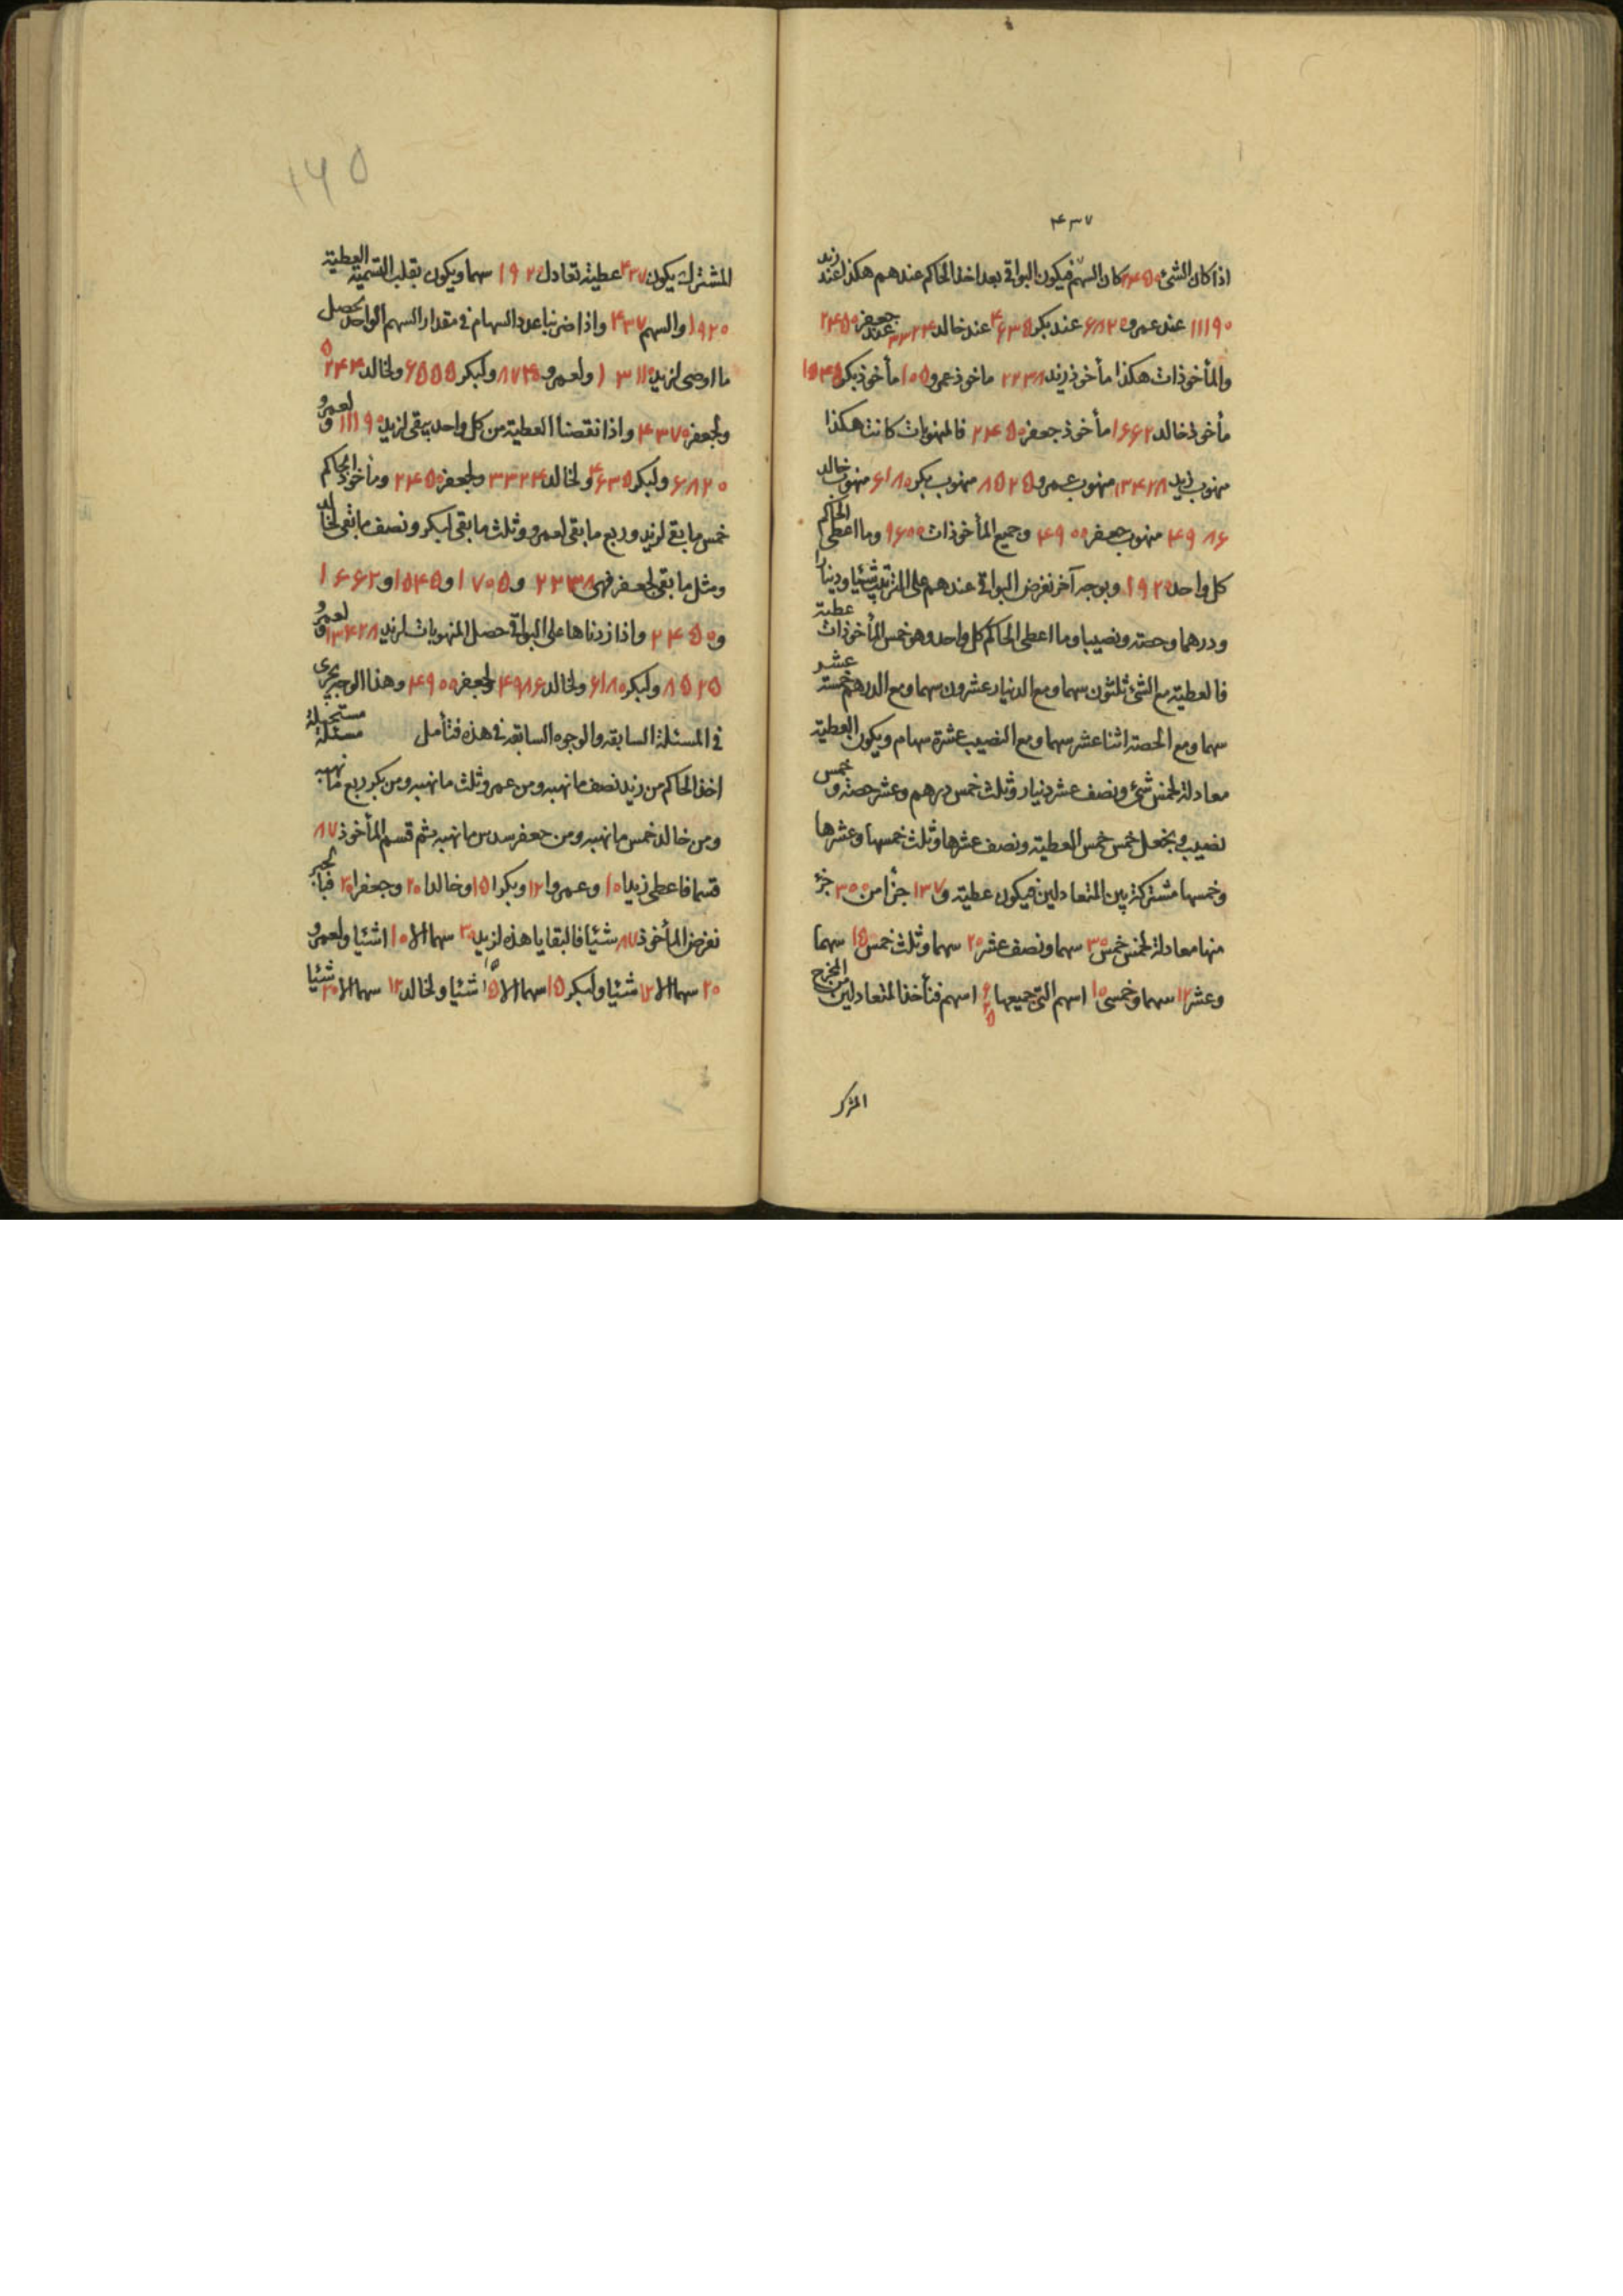 ۴۳۷
اذا كان الشئ ۲۴۵۰ كان السهم فيكون البواقی بعد اخذ الحاكم عندهم هكذا عند زيد
۱۱۱۹۰ عند عمرو ۶۸۲۰ عند بكر ۴۶۳۵ عند خالد ۳۳۲۴ عند جعفر ۲۴۵۰
والمأخوذات هكذا مأخوذ زيد ۲۲۳۸ ماخوذ عمرو مأخوذ بكر ۱۵۴۵
مأخوذ خالد ۱۶۶۲ مأخوذ جعفر ۲۴۵۰ فالمنهوبات كانت هكذا
منهوب زيد ۱۳۴۲۸ منهوب عمرو ۸۵۲۵ منهوب بكر ۶۱۸۰ منهوب خالد
۴۹۸۶ منهوب جعفر ۴۹۰۰ وجميع المأخوذات ۹۶۰۰ وما اعطی الحاكم
كل واحد ۱۹۲۰ وبوجه آخر نفرض البواقی عندهم علی الترتيب شيئا ودينارا
ودرهما وحصته ونصيبا وما اعطی الحاكم كل واحد وهو خمس المأخوذات عطية
فالعطية مع الشئ ثلثون سهما ومع الدينار عشرون سهما ومع الدرهم خمسة عشر
سهما ومع الحصة اثنا عشر سهما ومع النصيب عشرة سهام ويكون العطية
معادلة لخمس خمس شئ ونصف عشر دينار وثلث خمس درهم وعشر حصة و
نصيب ونجعل خمس خمس العطية ونصف عشرها وثلث خمسها وعشرها
وخمسها مشتركة بين المتعادلين فيكون عطية و ۱۳۷ جزأ من ۳۰۰ جزء
منها معادلة لخمس خمس ۳۰ سهما ونصف عشر ۲۰ سهما وثلث خمس ۱۵ سهما
وعشر ۱۲ سهما وخمس ۱۰ اسهم التی جميعها اسهم فنأخذ المتعادلين من المخرج
المشترك
۱۶۵
المشترك يكون ۴۳۷ عطية تعادل ۱۹۲۰ سهما ويكون بقلب التسمية العطية
۱۹۲۰ والسهم ۴۳۷ واذا ضربنا عدد السهام فی مقدار السهم الواحد يحصل
ما اوصی لزيد ولعمرو ۸۷۴۰ ولبكر ۶۵۵۵ ولخالد ۵۲۴۴
ولجعفر ۴۳۷۰ واذا نقصنا العطية من كل واحد يبقی لزيد ۱۱۱۹۰ ولعمرو
۶۸۲۰ ولبكر ۴۶۳۵ ولخالد ۳۳۲۴ ولجعفر ۲۴۵۰ ومأخوذ الحاكم
خمس ما بقی لزيد وربع ما بقی لعمرو وثلث ما بقی لبكر ونصف ما بقی لخالد
ومثل ما بقی لجعفر فهی ۲۲۳۸ و ۱۷۰۵ و ۱۵۴۵ و ۱۶۶۲
و ۲۴۵۰ واذا زدناها علی البواقی حصل المنهوبات لزيد ۱۳۴۲۸ ولعمرو
۸۵۲۵ ولبكر ۶۱۸۰ ولخالد ۴۹۸۶ ولجعفر ۴۹۰۰ وهذا الوجه يجری
فی المسئلة السابقة والوجوه السابقة فی هذه فتأمل مسئلة مستحيلة
اخذ الحاكم من زيد نصف ما نهبه ومن عمرو ثلث ما نهبه ومن بكر ربع ما نهبه
ومن خالد خمس ما نهبه ومن جعفر سدس ما نهبه ثم قسم المأخوذ ۸۷
قسما فاعطی زيدا ۱۰ وعمروا ۱۲ وبكرا ۱۵ وخالدا ۲۰ وجعفرا ۳۰ فبالجبر
نفرض المأخوذ ۸۷ شيئا فالبقايا هذه لزيد ۳۰ سهما الا ۱۰ اشيا ولعمرو
۲۰ سهما الا ۱۲ شيئا ولبكر ۱۵ سهما الا ۱۵ شيئا ولخالد ۱۲ سهما الا ۲۰ شيئا